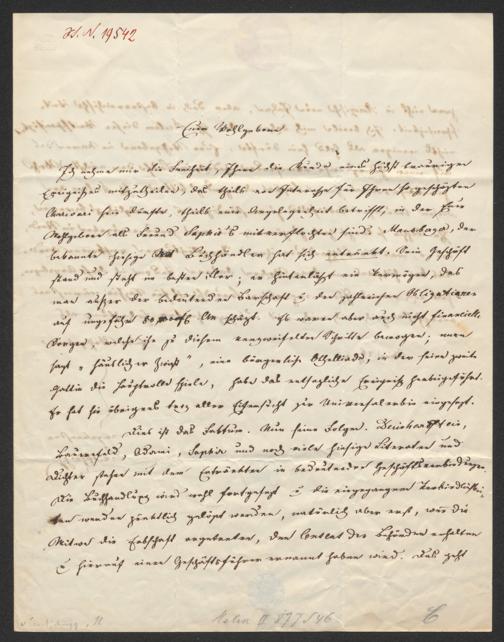 H. I. N. 19542
Euer Wohlgeboren
Ich nehme mir die Freiheit, Ihnen die Kunde eines höchst traurigen
Ereignißes mitzutheilen, das theils von Interesse für Ihren geschätzten
sein dürfte, theils eine Angelegenheit betrifft, in der Euer
Wohlgeboren als Freund Saphir's mitverflochten sind. der
bekannte hiesige Buchhändler hat sich Sein Geschäft
stand und steht im besten Flor; er hinterläßt ein Vermögen, das
man außer der bedeutenden Baarschaft u den zahlreichen Obligationen
auf ungefähr schätzt. Es waren aber auch nicht finanzielle
Sorgen, welche ihn zu diesem verzweifelten Schritte bewogen; man
sagt „häuslicher Zwist", eine bürgerliche Othelliade, in der seine zweite
Gattin die Hauptrolle spiele, habe das entsetzliche Ereigniß herbeigeführt.
Er hat sie übrigens trotz aller Eifersucht zur Universalerbin eingesetzt.
Dies ist das Faktum. Nun seine Folgen.
Bauernfeld, Adami, Saphir und noch viele hiesige Literaten und
Dichter stehen mit dem Entrückten in bedeutender Geschäftsverbindung.
Die Buchhandlung wird wohl fortgesetzt u die eingegangenen Verbindlichkei-
ten werden pünktlich gelöst werden, natürlich aber erst, wenn die
Witwe die Erbschaft angetreten, den Consens der Behörden erhalten
u hierauf einen Geschäftsführer ernannt haben wird. Das geht